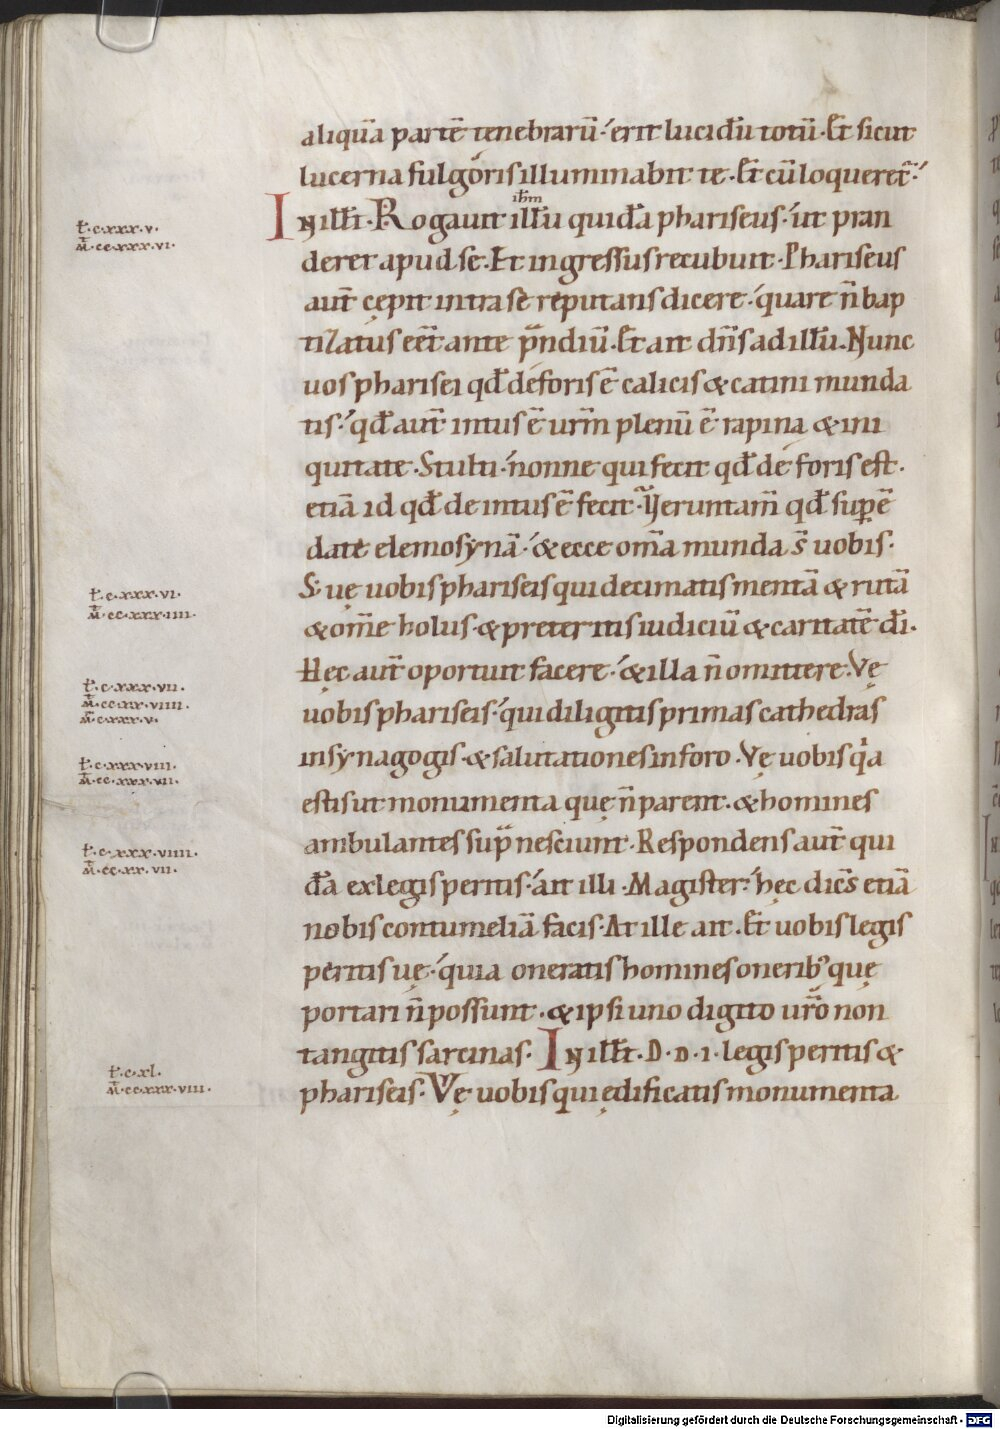 aliquā partē tenebrarū· erit lucidū totū· Et sicut
lucerna fulgoris illuminabit te· Et cū loqueret̄·
ihm̄
l̄·c·xxx·v·
m̄·cc·xxx·vi·
IN ill̄t· Rogauit illū quidā phariseus· ut pran
deret apud se· Et ingressus recubuit· Phariseus
aut̄ cępit intra se reputans dicere· quare n̄ bap
tizatus eēt ante p̄ndiū· Et ait dn̄s ad illū· Nunc
uos pharisei qd̄ deforis ē calicis & catini munda
tis· qd̄ aut̄ intus ē urm̄ plenū ē rapina & ini
quitate· Stulti· nonne qui fecit qd̄ de foris est·
etiā id qd̄ de intus ē fecit· Veruntam̄ qd̄ sup̄ē
date elemosynā· & ecce om̄a munda s̄ uobis·
l̄·c·xxx·vi·
m̄·cc·xxx·iiii·
S; uę uobis phariseis qui decimatis mentā & rutā
& om̄e holus· & preteritis iudiciū & caritatē dī·
Hęc aut̄ oportuit facere· & illa n̄ omittere· Vę
l̄·c·xxx·vii·
m̄·cc·xx·viiii·
m̄·c·xxx·v·
uobis phariseis· qui diligitis primas cathedras
in synagogis· & salutationes in foro· Vę uobis qa
l̄·c·xxx·viii·
m̄·cc·xxx·vii·
estis ut monumenta quę n̄ parent· & homines
ambulantes sup̄ nesciunt· Respondens aut̄ qui
l̄·c·xxx·viiii·
m̄·cc·xx·vii·
dā ex legis peritis· ait illi· Magister· hęc dicēs etiā
nobis contumeliā facis· At ille ait· Et uobis legis
peritis uę· quia oneratis homines onerib; quę
portari n̄ possunt· & ipsi uno digito ur̄o non
tangitis sarcinas· IN ill̄t· D· n· i· legis peritis &
l̄·c·xl·
m̄·cc·xxx·viii·
phariseis· Vę uobis qui ędificatis monumenta
Digitalisierung gefördert durch die Deutsche Forschungsgemeinschaft - DFG